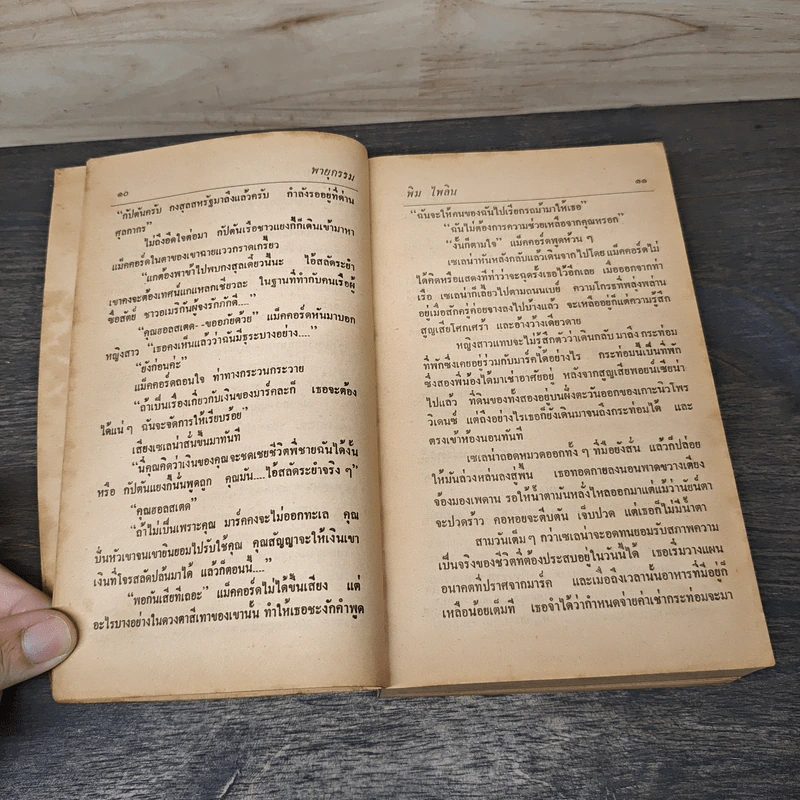 ๑๐ พายุกรรม
“กัปตันครับ กงสุลสหรัฐมาลงแล้วครับ กำลังรออยู่ที่ด่าน
ศุลกากร”
ไม่ถึงอึดใจต่อมา กัปตันเรือชาวแยงกี้ก็เดินเข้ามาหา
แม็คคอร์ดในตาของเขาฉายแววกราดเกรี้ยว
“แกต้องพาข้าไปพบกงสุลเดี๋ยวนี้นะ ไอ้สลัดระยำ
เขาคงจะต้องเทศน์แกแหลกเชียวละ ในฐานที่ทำกับคนเรือผู้
ซื่อสัตย์ ชาวอเมริกันผู้จงรักภักดี....”
“คุณออลสเตด-ขออภัยด้วย” แม็คคอร์ดหันมาบอก
หญิงสาว “เธอคงเห็นแล้วว่าฉันมีธุระบางอย่าง....”
“ยังก่อนค่ะ”
แม็คคอร์ดถอนใจ ท่าทางกระวนกระวาย
“ถ้าเป็นเรื่องเกี่ยวกับเงินของมาร์คละก็ เธอจะต้อง
ได้แน่ ๆ ฉันจะจัดการให้เรียบร้อย”
เสียงเซเลน่าสั่นขึ้นมาทันที
“นี่คุณคิดว่าเงินของคุณจะชดเชยชีวิตพี่ชายฉันได้งั้น
หรือ กัปตันแยงกี้นั่นพูดถูก คุณมัน....ไอ้สลัดระยำจริง ๆ”
“คุณออลสเตด”
“ถ้าไม่เป็นเพราะคุณ มาร์คคงจะไม่ออกทะเล คุณ
ปั่นหัวเขาจนเขายินยอมไปรับใช้คุณ คุณสัญญาจะให้เงินเขา
เงินที่โจรสลัดปล้นมาได้ แล้วก็ตอนนี้....”
“พอกันเสียทีเถอะ” แม็คคอร์ดไม่ได้ขึ้นเสียง แต่
อะไรบางอย่างในดวงตาสีเทาของเขานั้น ทำให้เธอชะงักคำพูด
พิม ไพลิน ๑๑
“ฉันจะให้คนของฉันไปเรียกรถม้ามาให้เธอ”
“ฉันไม่ต้องการความช่วยเหลือจากคุณหรอก”
“งั้นก็ตามใจ” แม็คคอร์ดพูดห้วน ๆ
เซเลน่าหันหลังกลับแล้วเดินจากไปโดย แม็คคอร์ดไม่
ได้คิดหรือแสดงที่ท่าว่าจะฉุดรั้งเธอไว้อีกเลย เมื่อออกจากท่า
เรือ เซเลน่าก็เลี้ยวไปตามถนนเบย์ ความโกรธที่พลุ่งพล่าน
อยู่เมื่อสักครู่ค่อยจางลงไปบ้างแล้ว จะเหลืออยู่ก็แต่ความรู้สึก
สูญเสียโศกเศร้า และอ้างว้างเดียวดาย
หญิงสาวแทบจะไม่รู้สึกตัวว่าเดินกลับ มาถึง กระท่อม
ที่พักซึ่งเคยอยู่ร่วมกับมาร์คได้อย่างไร กระท่อมนี้เป็นที่พัก
ซึ่งสองพี่น้องได้มาเช่าอาศัยอยู่ หลังจากสูญเสียพอยน์เซียน่า
ไปแล้ว ที่ดินของทั้งสองอยู่บนฝั่งตะวันออกของเกาะนิวโพร
วิเดนซ์ แต่ถึงอย่างไรเธอก็ยังเดินมาจนถึงกระท่อมได้ และ
ตรงเข้าห้องนอนทันที
เซเลน่าถอดหมวกออกทั้ง ๆ ที่มือยังสั่น แล้วก็ปล่อย
ให้มันล่วงหล่นลงสู่พื้น เธอทอดกายลงนอนพาดขวางเตียง
จ้องมองเพดาน รอให้น้ำตามันหลั่งไหลออกมาแต่แม้ว่านัยน์ตา
จะปวดร้าว คอหอยจะตีบตัน เจ็บปวด แต่เธอก็ไม่มีน้ำตา
สามวันเต็มๆ กว่าเซเลน่าจะอดทนยอมรับสภาพความ
เป็นจริงของชีวิตที่ต้องประสบอยู่ในวันนี้ได้ เธอเริ่มวางแผน
อนาคตที่ปราศจากมาร์ค และเมื่อถึงเวลานั้นอาหารที่มีอยู่ก็
เหลือน้อยเต็มที เธอจำได้ว่ากำหนดจ่ายค่าเช่ากระท่อมจะมา